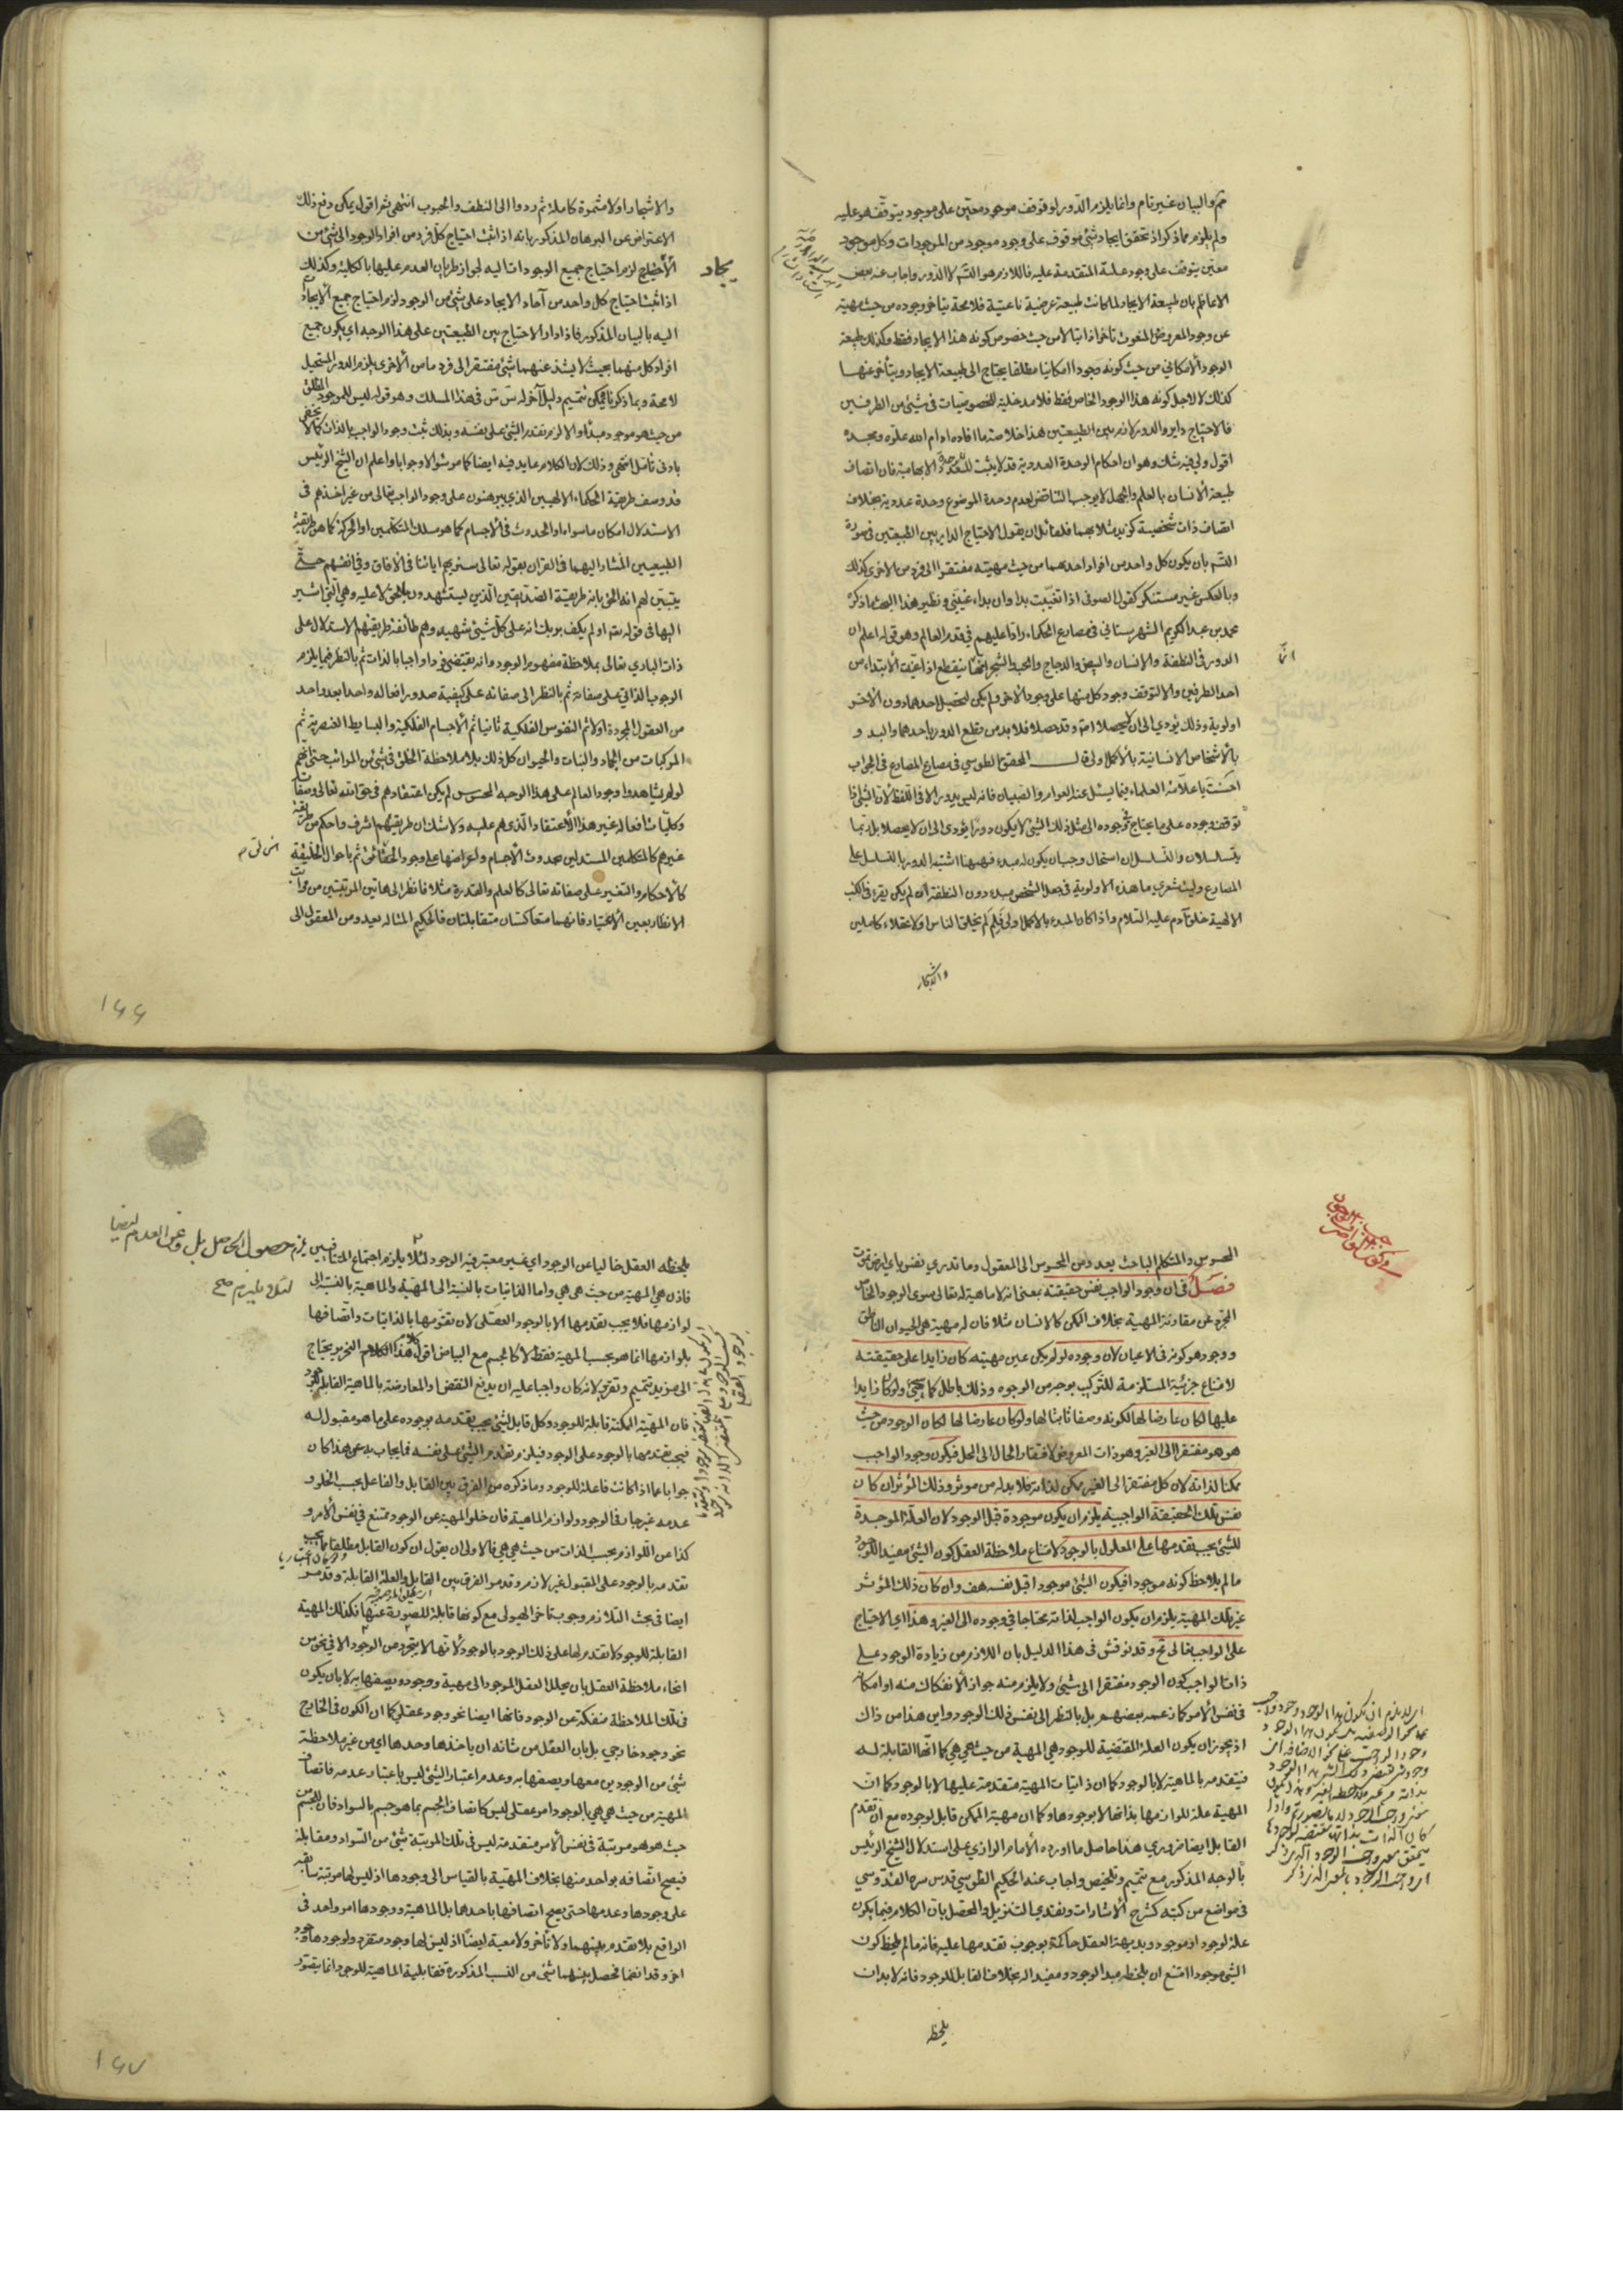 تم والبيان غير تام وانما يلزم الدور لو توقف موجود معين على موجود يتوقف هو عليه
ولم يلزم مما ذكر اذ تحقق ايجاد شئ موقوف على وجود موجود من الموجودات وكل موجود
معين يتوقف على وجود علة المتقدمة عليه فاللازم هو التس لا الدور واجاب عنه بعض
الاعاظم بان طبيعة الايجاد لما كانت طبيعة عرضية ناعتية فلا محة يتاخر وجوده من حيث مهيته
عن وجود المعروض المنعوت تأخرا ذاتيا لا من حيث خصوص كونه هذا الايجاد فقط وكذلك طبيعة
الوجود الامكاني من حيث كونه وجودا امكانيا مطلقا يحتاج الى طبيعة الايجاد ويتأخر عنها
كذلك لا لاجل كونه هذا الوجود الخاص فقط فلا مدخلية للخصوصيات في شئ من الطرفين
فالاحتياج داير والدور لازم بين الطبيعتين هذا خلاصة ما افاده ادام الله علوه ومجده
اقول ولي فيه شك وهو ان احكام الوحدة العددية قد لا يثبت للوحدة الابهامية فان اتصاف
طبيعة الانسان بالعلم والجهل لا يوجب التناقض لعدم وحدة الموضوع وحدة عددية بخلاف
اتصاف ذات شخصية كزيد مثلا بهما فلقائل ان يقول الاحتياج الداير بين الطبيعتين في صورة
التس بان يكون كل واحد من افراد احدهما من حيث مهيته مفتقرا الى فرد من الاخرى كذلك
وبالعكس غير مستنكر كقول الصوفي اذا تغيبت بدا وان بدا غيبني ونظير هذا البحث ما ذكره
محمد بن عبد الكريم الشهرستاني في مصارع الحكماء رادا عليهم في قدم العالم وهو قوله اعلم ان
الدور في النطفة والانسان والبيض والدجاج والحب والشجر انما ينقطع اذا عينت الابتداء من
احد الطرفين والا لتوقف وجود كل منها على وجود الاخر ولم يكن لتحصيل احدهما دون الاخر
اولوية وذلك يؤدي الى ان لا يحصلا اصلا وقد حصلا فلا بد من قطع الدور باحدهما والبدو
بالاشخاص الانسانية بالاكمل اولى قال المحقق الطوسي في مصارع المصارع في الجواب
احسنت يا علامة العلماء فيما يسئل عنه العوام والصبيان فانه ليس بدور الا في اللفظ لان الشئ اذا
توقف وجوده على ما يحتاج في وجوده الى مثل ذلك الشئ لا يكون دورا يؤدي الى ان لا يحصلا بل ربما
يتسلسلان والتسلسل ان استحال وجب ان يكون له مبدء فههنا اشتبه الدور بالتسلسل على
المصارع وليت شعري ما هذه الاولوية في جعل الشخص مبدء دون النطفة ان لم يكن يقرء في الكتب
الالهية خلق آدم عليه السلام واذا كان المبدء بالاكمل اولى فلم لم يخلق الناس اولا عقلاء كاملين
والاشجار
والاشجار اولا مثمرة كاملة ثم ردوا الى النطف والحبوب انتهى ثم اقول يمكن دفع ذلك
الاعتراض عن البرهان المذكور بانه اذا ثبت احتياج كل فرد من افراد الوجود الى شئ من
الايجاد لزم احتياج جميع الوجودات اليه لجواز طريان العدم عليها بالكلية وكذلك
ايجاد
اذا ثبت احتياج كل واحد من آحاد الايجاد على شئ من الوجود لزم احتياج جميع الايجاد
اليه بالبيان المذكور فاذا دار الاحتياج بين الطبيعتين على هذا الوجه اي يكون جميع
افراد كل منهما بحيث لا يشذ عنهما شئ مفتقرا الى فرد ما من الاخرى يلزم الدور المستحيل
لا محة وبما ذكرنا يمكن تتميم دليل آخر له في هذا المسلك وهو قوله ليس للموجود المطلق
من حيث هو موجود مبدأ والا لزم تقدم الشئ على نفسه وبذلك ثبت وجود الواجب بالذات كما لا يخفى
بادنى تأمل انتهى وذلك لان الكلام عايد فيه ايضا كما مر سؤالا وجوابا واعلم ان الشيخ الرئيس
قد وصف طريقة الحكماء الالهيين الذين يبرهنون على وجود الواجب تعالى من غير اخذهم في
الاستدلال امكان ما سواه او الحدوث في الاجسام كما هو مسلك المتكلمين او الحركة كما هو طريقة
الطبيعيين المشار اليهما في القران بقوله تعالى سنريهم اياتنا في الافاق وفي انفسهم حتى
يتبين لهم انه الحق بانه طريقة الصديقين الذين يستشهدون بالحق لا عليه وهي التي اشير
اليها في قوله تع اولم يكف بربك انه على كل شئ شهيد وهم طائفة طريقتهم الاستدلال على
ذات الباري تعالى بملاحظة مفهوم الوجود وانه يقتضي فردا واجبا بالذات ثم بالنظر فيما يلزم
الوجوب الذاتي على صفاته ثم بالنظر الى صفاته على كيفية صدور افعاله واحدا بعد واحد
من العقول المجردة اولا ثم النفوس الفلكية ثانيا ثم الاجسام الفلكية والبسايط العنصرية ثم
المركبات من الجماد والنبات والحيوان كل ذلك بلا ملاحظة الخلق في شئ من المراتب حتى انهم
لو لم يشاهدوا وجود العالم على هذا الوجه المحسوس لم يكن اعتقادهم في حق الله تعالى وصفاته
وكليات افعاله غير هذا الاعتقاد الذي هم عليه ولا شك ان طريقهم اشرف واحكم من طريقة
غيرهم كالمتكلمين المستدلين بحدوث الاجسام واعراضها على وجود الخالق ثم باحوال الخليقة
كالاحكام والتغير على صفاته تعالى كالعلم والقدرة مثلا فانظر الى هاتين المرتبتين من مراتب
الانظار بعين الاعتبار فانهما متعاكستان متقابلتان فالحكيم المتاله يعدو من المعقول الى
١٤٤
المحسوس والمتكلم الباحث يعدو من المحسوس الى المعقول وما تدري نفس باي ارض تموت
فصل في ان وجود الواجب نفس حقيقته بمعنى انه لا ماهية له تعالى سوى الوجود الخاص
المجرد عن مقارنة المهية بخلاف الممكن كالانسان مثلا فان له مهية هي الحيوان الناطق
ووجود هو كونه في الاعيان لان وجوده لو لم يكن عين مهيته كان زايدا على حقيقته
لامتناع جزئية المستلزمة للتركيب بوجه من الوجوه وذلك باطل كما يجئ ولو كان زايدا
عليها لكان عارضا لها لكونه وصفا ثابتا لها ولو كان عارضا لها لكان الوجود من حيث
هو هو مفتقرا الى الغير وهو ذات المعروض لافتقار الحال الى المحل فيكون وجود الواجب
ممكنا لذاته لان كل مفتقر الى الغير ممكن لذاته فلا بد له من موثر وذلك المؤثر ان كان
نفس تلك الحقيقة الواجبية يلزم ان يكون موجودة قبل الوجود لان العلة الموجدة
للشئ يجب تقدمها على المعلول بالوجود لامتناع ملاحظة العقل كون الشئ مفيدا للوجود
ما لم يلاحظ كونه موجودا فيكون الشئ موجودا قبل نفسه هف وان كان ذلك المؤثر
غير تلك المهية يلزم ان يكون الواجب لذاته محتاجا في وجوده الى الغير وهذا اي الاحتياج
على الواجب تعالى مح وقد نوقش في هذا الدليل بان اللازم من زيادة الوجود على
ذات الواجب كون الوجود مفتقرا الى شئ ولا يلزم منه جواز الانفكاك منه او امكانه
في نفس الامر كما زعمه بعضهم بل بالنظر الى نفس ذلك الوجود واين هذا من ذاك
اذ يجوز ان يكون العلة المقتضية للوجود هي المهية من حيث هي هي كما انها القابلة له
فيتقدمه بالماهية لا بالوجود كما ان ذاتيات المهية متقدمة عليها لا بالوجود وكما ان
المهية علة للوازمها بذاتها لا بوجودها وكما ان مهية الممكن قابل لوجوده مع ان تقدم
القابل ايضا ضروري هذا حاصل ما اورده الامام الرازي على استدلال الشيخ الرئيس
بالوجه المذكور مع تتميم وتلخيص واجاب عنه الحكيم الطوسي قدس سره القدوسي
في مواضع من كتبه كشرح الاشارات ونقدي التنزيل والمحصل بان الكلام فيما يكون
علة لوجود او موجود وبديهة العقل حاكمة بوجوب تقدمها عليه فانه ما لم يلحظ كون
الشئ موجودا امتنع ان يلحظه مبدا لوجود ومفيدا له بخلاف القابل للوجود فانه لا بد ان
يلحظه
يلحظه العقل خاليا عن الوجود اي غير معتبر فيه الوجود لئلا يلزم اجتماع المتنافيين
فاذن هي المهية من حيث هي هي واما الذاتيات بالنسبة الى المهية والماهية بالنسبة الى
لوازمها فلا يجب تقدمها الا بالوجود العقلي لان تقومها بالذاتيات واتصافها
بلوازمها انما هو بحسب المهية فقط لا كالجسم مع البياض اقول هذا الكلام التحرير يحتاج
الى مزيد تتميم وتقرير لانه كان واجبا عليه ان يدفع النقض والمعارضة بالماهية القابلة للوجود
فان المهية الممكنة قابلة للوجود وكل قابل لشئ يجب تقدمه بوجوده على ما هو مقبول له
فيجب تقدمها بالوجود على الوجود فيلزم تقدم الشئ على نفسه فما يجاب به عن هذا كان
جوابا عما اذا كانت فاعلة للوجود وما ذكره من الفرق بين القابل والفاعل بحسب الخلو و
عدمه غير جار في الوجود ولوازم الماهية فان خلو المهية عن الوجود ممتنع في نفس الامر و
كذا عن اللوازم بحسب الذات من حيث هي هي فالاولى ان يقول ان كون القابل مطلقا مما يجب
تقدمه بالوجود على المقبول غير لازم وقد مر الفرق بين القابل والعلة القابلة وقد مر
ايضا في بحث التلازم وجوب تأخر الهيولى مع كونها قابلة للصورة عنها فكذلك المهية
القابلة للوجود لا تقدم لها على ذلك الوجود بالوجود لانها لا يتجرد عن الوجود الا في نحو من
انحاء ملاحظة العقل بان يحلل العقل الموجود الى مهية ووجود ويصفها به لا بان يكون
في تلك الملاحظة منفكة عن الوجود فانها ايضا نحو وجود عقلي كما ان الكون في الخارج
نحو وجود خارجي بل بان العقل من شانه ان ياخذها وحدها اي من غير ملاحظة
شئ من الوجودين معها ويصفها به وعدم اعتبار الشئ ليس باعتبار عدمه فاتصاف
المهية من حيث هي هي بالوجود امر عقلي ليس كاتصاف الجسم بما هو جسم بالسواد فان للجسم من
حيث هو هو مرتبة في نفس الامر متقدمة ليس في تلك المرتبة شئ من السواد ومقابله
فيصح اتصافه بواحد منها بخلاف المهية بالقياس الى وجودها اذ ليس لها مرتبة سابقة
على وجودها وعدمها حتى يصح اتصافها باحدها بل الماهية ووجودها امر واحد في
الواقع بلا تقدم بينهما ولا تأخر ولا معية ايضا اذ ليس لها وجود متفرد ولوجودها وجود
اخر وقد انضما فحصل بينهما شئ من النسب المذكورة فقابلية الماهية للوجود انما يتصور
١٤٧